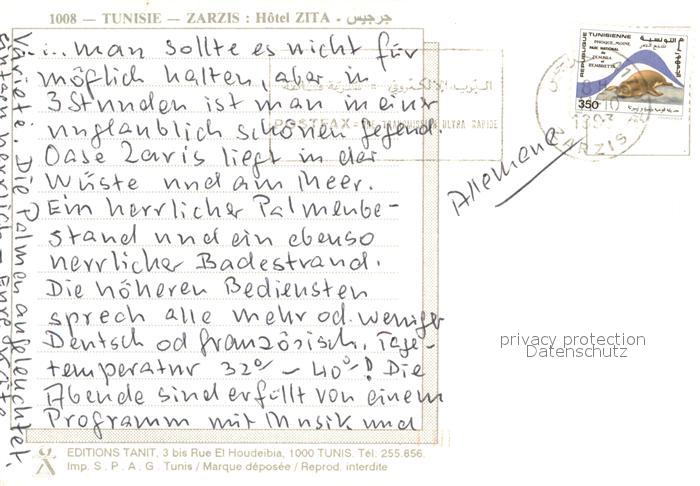 1008 - TUNISIE - ZARZIS : Hôtel ZITA - جرجيس
i... man sollte es nicht für
möglich halten, aber in
3 Stunden ist man in einer
unglaublich schönen Gegend.
Oase Zaris liegt in der
Wüste und am Meer.
Ein herrlicher Palmenbe-
stand und ein ebenso
herrlicher Badestrand.
Die höheren Bediensten
sprech alle mehr od. weniger
Deutsch od französisch. Tage-
temperatur 32° - 40°! Die
Abende sind erfüllt von einem
Programm mit Musik und
Varieté. Die Palmen angeleuchtet.
Einfach herrlich - Eure Käte
Allemagne
REPUBLIQUE TUNISIENNE
PHOQUE MOINE
PARC NATIONAL
DE ZEMBRA
ET ZEMBRETTA
350
البريد الإلكتروني
POSTFAX = TRANSMISSION ULTRA RAPIDE
10
1993
ZARZIS
privacy protection
Datenschutz
EDITIONS TANIT, 3 bis Rue El Houdeibia, 1000 TUNIS. Tél: 255.656.
Imp. S . P . A . G . Tunis / Marque déposée / Reprod. interdite